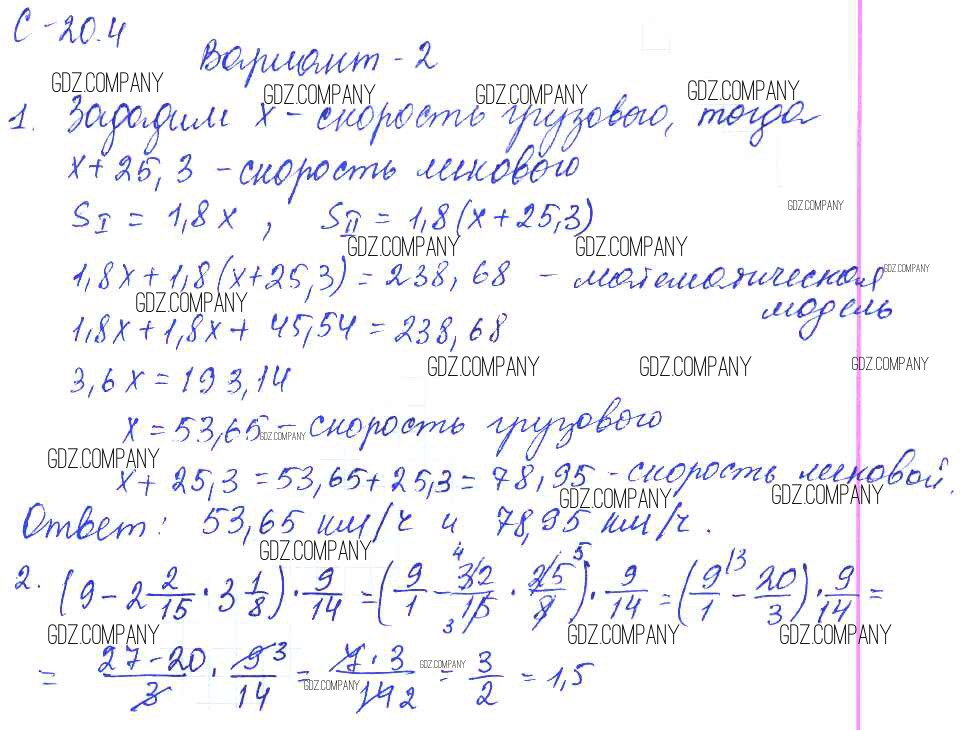 С-20.4
Вариант-2
GDZ.COMPANY GDZ.COMPANY GDZ.COMPANY GDZ.COMPANY
1. Зададим x - скорость грузового, тогда
x + 25,3 - скорость легкового
GDZ.COMPANY
S_I = 1,8x, S_II = 1,8(x + 25,3)
GDZ.COMPANY GDZ.COMPANY GDZ.COMPANY
1,8x + 1,8(x + 25,3) = 238,68 - математическая
модель
GDZ.COMPANY
1,8x + 1,8x + 45,54 = 238,68
GDZ.COMPANY GDZ.COMPANY GDZ.COMPANY
3,6x = 193,14
x = 53,65 - скорость грузового
GDZ.COMPANY GDZ.COMPANY
x + 25,3 = 53,65 + 25,3 = 78,95 - скорость легковой.
GDZ.COMPANY GDZ.COMPANY
Ответ: 53,65 км/ч и 78,95 км/ч.
GDZ.COMPANY
2. (9 - 2 2/15 · 3 1/8) · 9/14 = (9/1 - 32/15 · 25/8) · 9/14 = (9/1 - 20/3) · 9/14 =
GDZ.COMPANY GDZ.COMPANY GDZ.COMPANY
= (27-20)/3 · 9/14 = (7·3)/14 = 3/2 = 1,5
GDZ.COMPANY GDZ.COMPANY